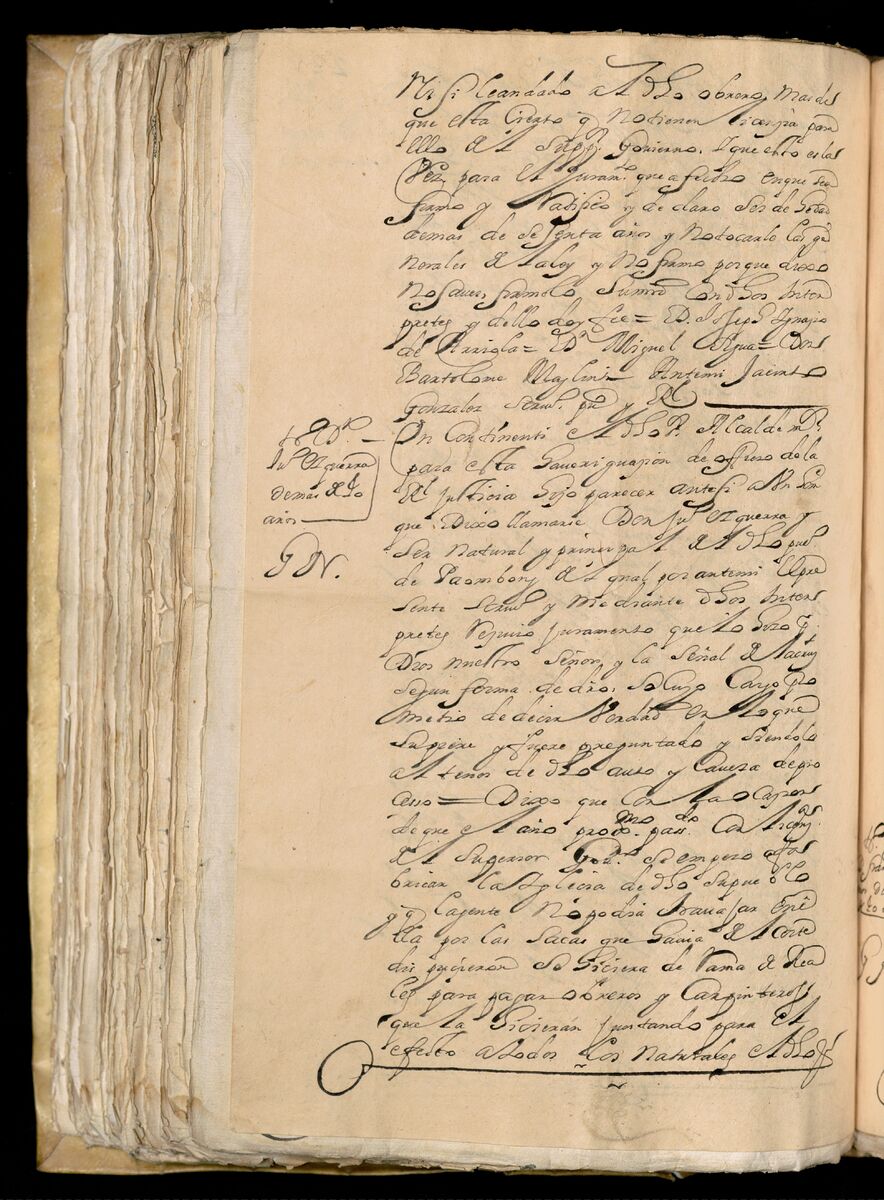 Ni si lean dado al dho obrero, mas de
que esta cierto q no tienen licençia para
ello del Supr. Govierno. Y que esto es la
Verd para el juramto que a fecho en que se a
firmo y Ratifico y de claro ser de hedad
de mas de sesenta años y no tocarle las ge
nerales de la ley y no firmo porque dixo
no saver firmolo Sumrd con dhos Inter
pretes y dello doy fee = D. Joseph Ignacio
de Arriola = Dn Miguel Agua = Don
Bartolome Antemi Jacinto
Gonzalez Scriu. pu y Rl
tº Dn.
Jun Ezguerra
de mas de
años
G N.
En Continenti el dho Sr. Alcalde mr.
para esta haveriguaçion de offiçio de la
Rl justicia hizo parecer ante si a Vn hom
que Dixo llamarse Don Jun Ezguerra y
ser natural y prinzipal del dho pueo
de Paombong del qual por antemi el pre
sente Scriuo y Mediante dhos Inter
pretes Reçiuio juramento que lo hizo pr
Dios nuestro Señor, y la Señal de la cruz
segun forma de dro. so cuyo cargo pro
metio de decir Verdad en lo que
supiere y fuere preguntado y siendolo
al tenor de dho auto y caveza de pro
cesso = Dixo que con la ocaçion
de que el año proxmo passdo con liçençia
del Superior Govno. se empezo a fa
bricar la Iglecia de dho su pueblo
y q la gente no podia travajar en e
lla por las sacas que havia de Corte
dispucieron se hiciera de Rama de Rea
les para pagar obreros y Carpinteros
que la hicieran juntando para el
efecto a todos los naturales del dho